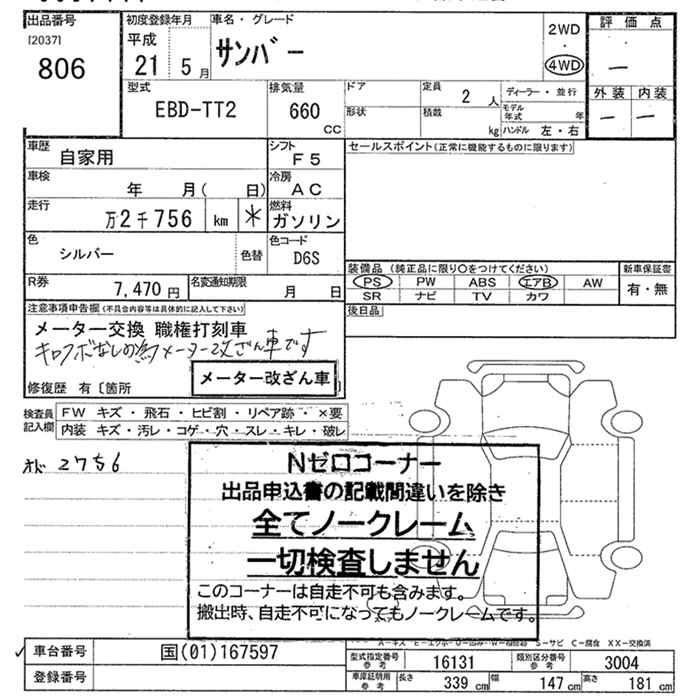 出品番号
[2037]
806
初度登録年月
平成
21 5月
車名・グレード
サンバー
2WD
・
4WD
評価点
—
外装 内装
— —
型式
EBD-TT2
排気量
660
CC
ドア
定員
2人
ディーラー・並行
形状
積載
kg
モデル年式 年
ハンドル 左・右
車歴
自家用
シフト
F5
セールスポイント(正常に機能するものに限ります)
車検
年 月( 日)
冷房
AC
走行
万2千756 km *
燃料
ガソリン
色
シルバー
色替
色コード
D6S
装備品 (純正品に限り○をつけてください)
新車保証書
PS PW ABS エアB AW
SR ナビ TV カワ
有・無
R券
7,470円
名変通知期限
月 日
後日品
注意事項申告欄(不具合内容等は具体的に記入して下さい)
メーター交換 職権打刻車
キロフボなしの為メーター改ざん車です
メーター改ざん車
修復歴 有〔箇所
検査員記入欄
FW キズ・飛石・ヒビ割・リペア跡・×要
内装 キズ・汚レ・コゲ・穴・スレ・キレ・破レ
オド 2756
Nゼロコーナー
出品申込書の記載間違いを除き
全てノークレーム
一切検査しません
このコーナーは自走不可も含みます。
搬出時、自走不可になってもノークレームです。
S－サビ C－腐食 XX－交換済
✓ 車台番号
国(01)167597
登録番号
型式指定番号 参考
16131
類別区分番号 参考
3004
車庫証明用 参考
長さ 339 cm
幅 147 cm
高さ 181 cm